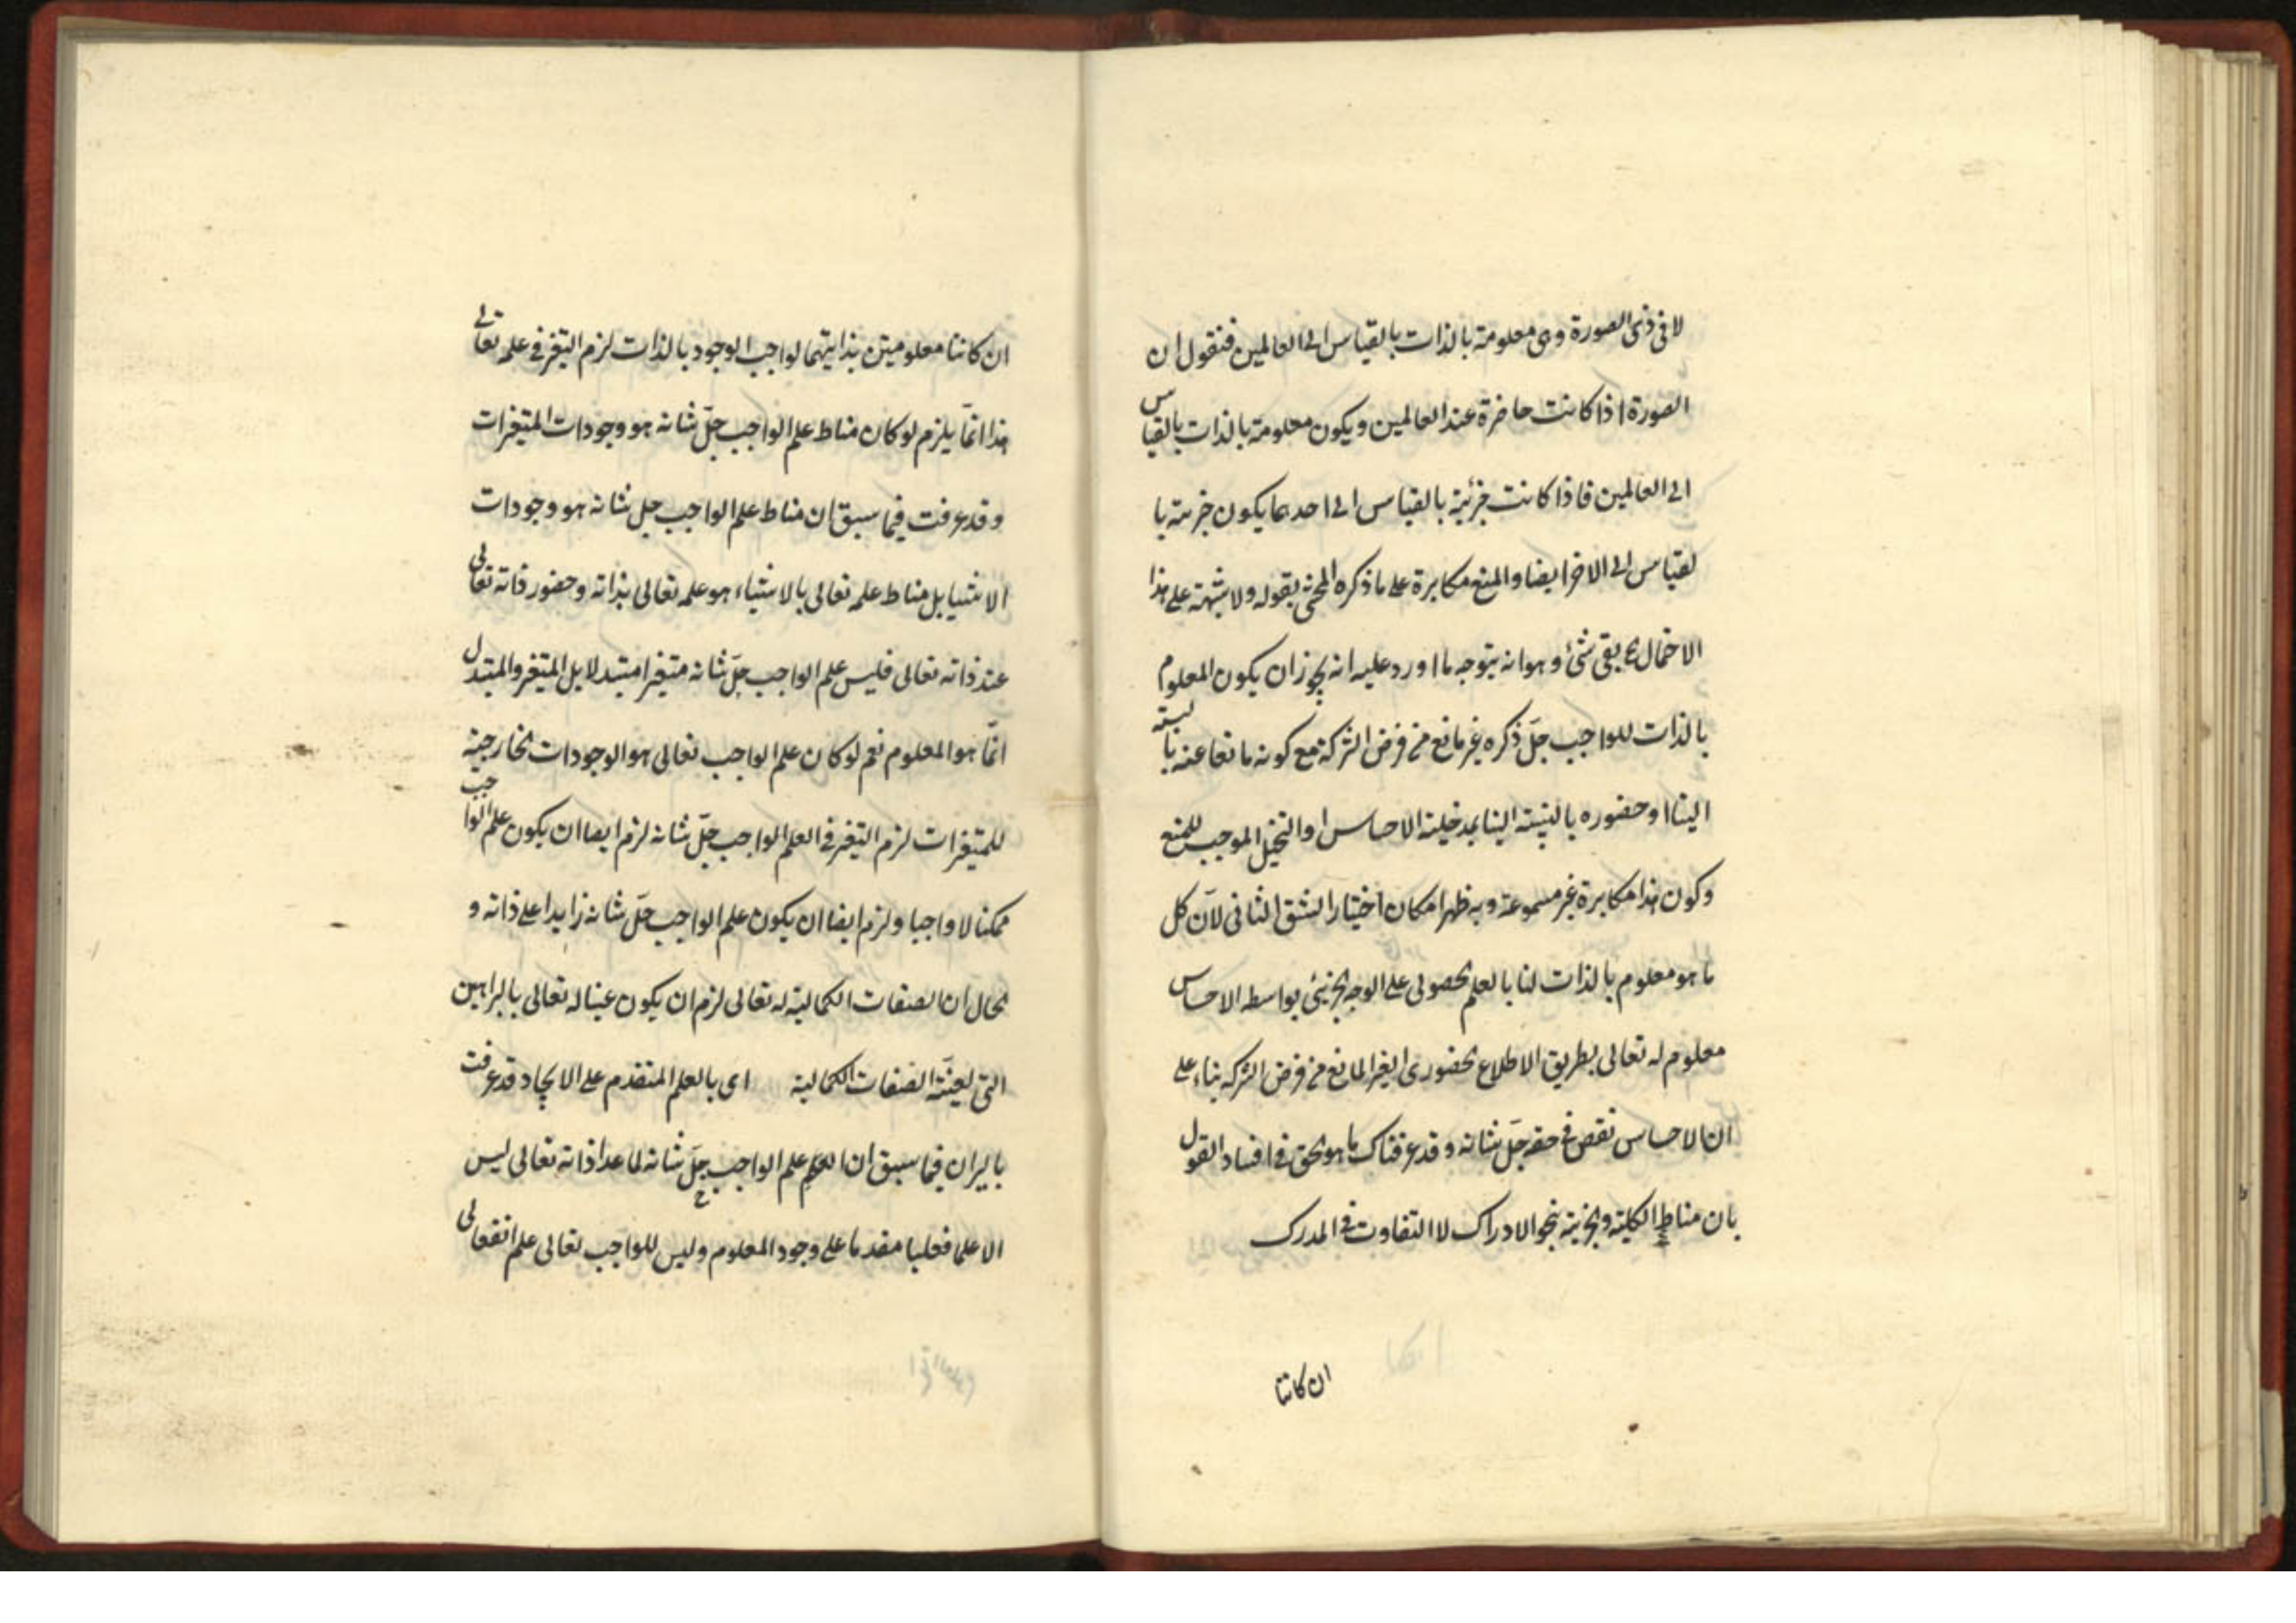 لا فى ذى الصورة وهى معلومة بالذات بالقياس الى العالمين فنقول ان
الصورة اذا كانت حاضرة عند العالمين ويكون معلومة بالذات بالقياس
الى العالمين فاذا كانت جزئية بالقياس الى احدهما يكون جزئية با
لقياس الى الاخر ايضا والمنع مكابرة على ما ذكره المحشى بقوله ولا شبهة على هذا
الاحتمال ح بقى شئ وهو انه يتوجه ما اورد عليه انه يجوز ان يكون المعلوم
بالذات للواجب جلّ ذكره غير مانع من فرض الشركة مع كونه مانعا عنه بالنسبة
الينا او حضوره بالنسبة الينا بمدخلية الاحساس او التخيل الموجب للمنع
وكون هذا مكابرة غير مسموعة وبه ظهر امكان اختيار الشق الثانى لانّ كل
ما هو معلوم بالذات لنا بالعلم الحصولى على الوجه الجزئى بواسطه الاحساس
معلوم له تعالى بطريق الاطلاع الحضورى الغير المانع من فرض الشركه بناء على
ان الاحساس نقص فى حقه جلّ شانه وقد عرفناك ما هو الحق فى افساد القول
بان مناط الكلية والجزئية بنحو الادراك لا التفاوت فى المدرك
ان كانتا
ان كانتا معلومتين بذاتيهما لواجب الوجود بالذات لزم التغير فى علمه تعالى
هذا انّما يلزم لو كان مناط علم الواجب جلّ شانه هو وجودات المتغيرات
وقد عرفت فيما سبق ان مناط علم الواجب جل شانه هو وجودات
الاشيا بل مناط علمه تعالى بالاشياء هو علمه تعالى بذاته وحضور ذاته تعالى
عند ذاته تعالى فليس علم الواجب جلّ شانه متغيرا متبدلا بل المتغير والمتبدل
انّما هو المعلوم نعم لو كان علم الواجب تعالى هو الوجودات الخارجية
للمتغيرات لزم التغير فى العلم الواجب جلّ شانه لزم ايضا ان يكون علم الواجب
ممكنا لا واجبا ولزم ايضا ان يكون علم الواجب جلّ شانه زايدا على ذاته و
الحال ان الصفات الكمالية له تعالى لزم ان يكون عينا له تعالى بالبراهين
التى لعينيّة الصفات الكمالية اى بالعلم المتقدم على الايجاد قد عرفت
بالبرهان فيما سبق ان العلم علم الواجب جلّ شانه لما عدا ذاته تعالى ليس
الا علما فعليا مقدما على وجود المعلوم وليس للواجب تعالى علم انفعالى